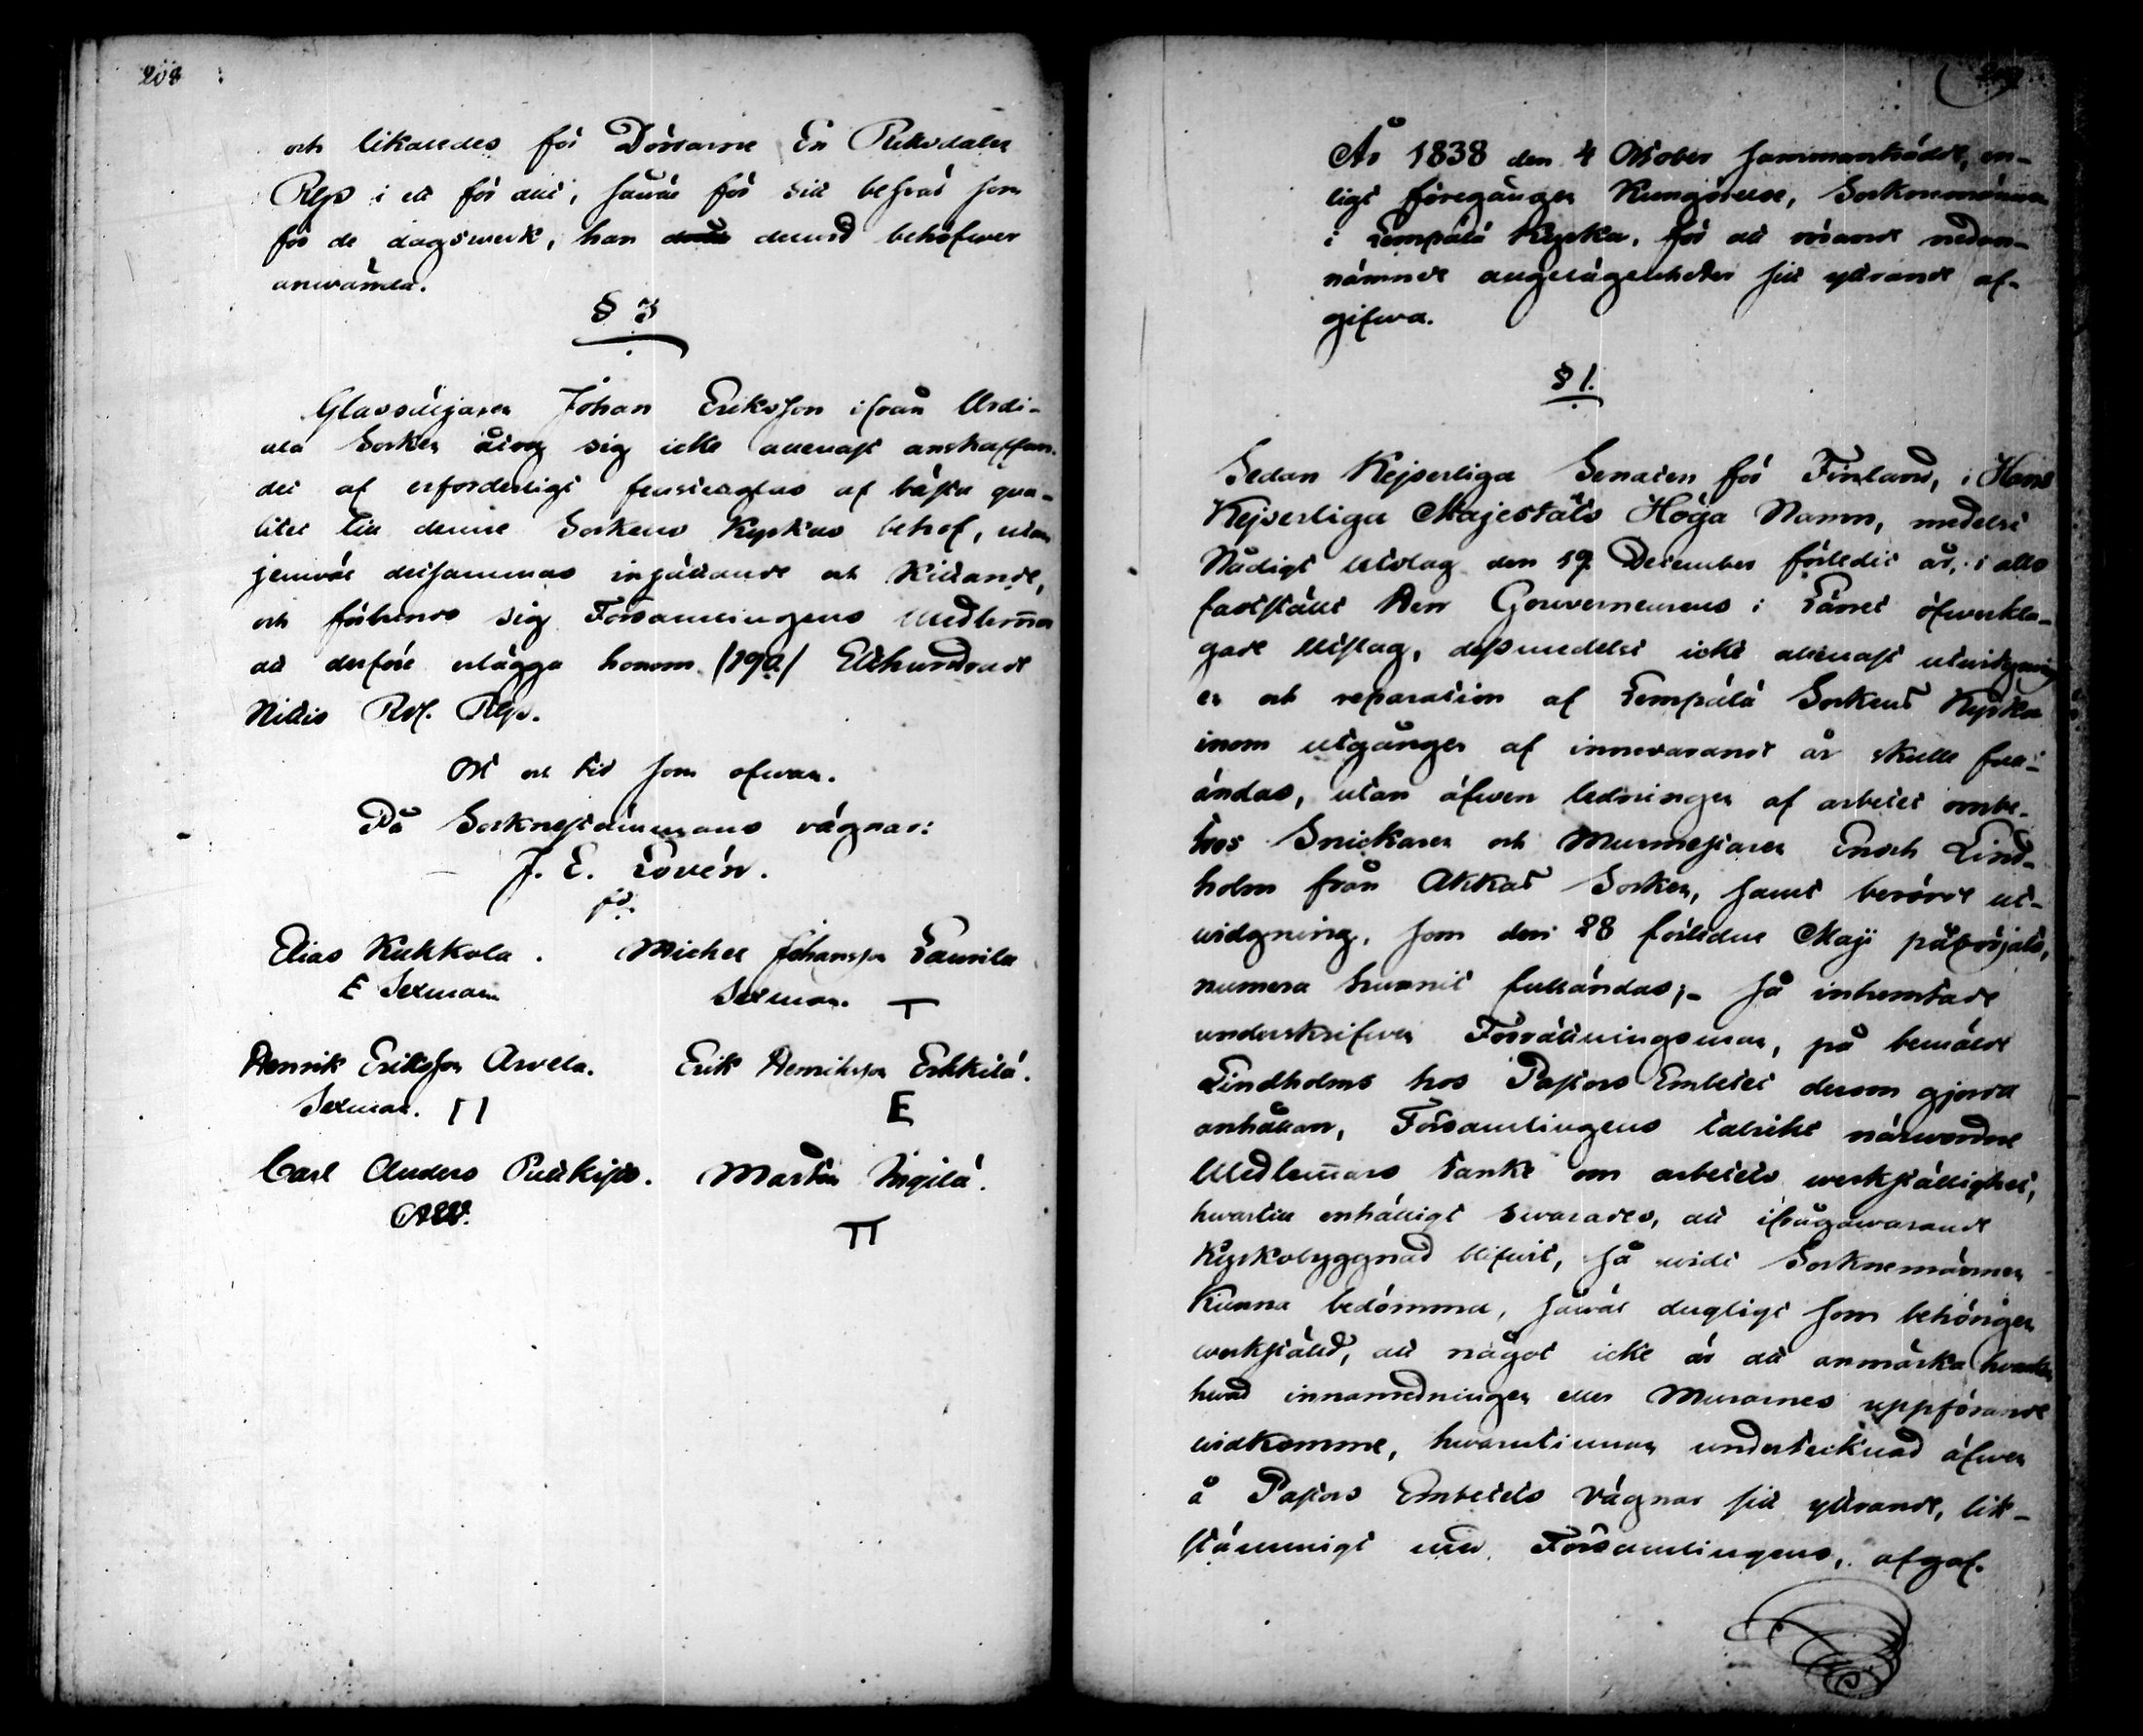 208
och likaledes för Dörrarne En Riksdaler
Rgs i ett för allt, såväl för sitt besvär som
för de dagswerk, han dertill behöfwer
anwända.
§ 3
Glassättjaren Johan Eriksson ifrån Urdi-
ala Socken åtog sig icke allenast anskaffan-
det af erforderligt fensterglas af bästa qua-
litet till denne Sockens Kyrkas behof, utan
jemväl detsammas insättande och Kittande,
och förbinds sig Församlingens Medlem̄ar
att derföre erlägga honom /190/ Etthundrade
Nittio Rd. Rgs.
Ort och tid som ofwan.
På Socknestämmans vägnar:
J. E. Lovén.
Elias Kukkola. Michel Johansson Laurila
E Sexman Sexman. T
Henrik Eriksson Arvela. Erik Henriksson Erkkilä.
Sexman. П E
Carl Anders Martin Yrjilä.
П
209
År 1838 den 4 October sammanträdde, en-
ligt föregången Kungörelse, Socknemännen
i Lempälä Kyrka, för att rörande nedan-
nämnde angelägenheter sitt yttrande af-
gifwa.
§ 1.
Sedan Kejserliga Senaten för Finland, i Hans
Kejserliga Majestäts Höga Namn, medelst
Nådigt Utslag den 19 December förledit år, i allo
fastställt Herr Gouverneurens i Länet öfwerkla-
gade Utslag, dessmedelst icke allenast utwidgning
en och reparation af Lempälä Sockens Kyrka
inom utgången af innevarande år skulle full-
ändas, utan äfwen ledningen af arbetet ombe-
tros Snickaren och Murmästaren Enoch Lind-
holm från Akkas Socken, samt berörde ut-
widgning, som den 28 förledne Maji påbörjats,
numera hunnit fulländas; - så inhemtade
underskrifwen Förrättningsman, på bemälde
Lindholms hos Pastors Embetet derom gjorda
anhållan, Församlingens talrikt närwarande
Medlem̄ars tanke om arbetets werkställighet,
hwartill enhälligt swarades, att ifrågawarande
Kyrkobyggnad blifwit, så widt Socknemännen
Kunna bedömma, såwäl dugligt som behörigen
werkställd, att något icke är att anmärka hwarken
hwad innanredningen eller Murarnes uppförande
widkomme, hwarutinnan undertecknad äfwen
å Pastors Embetets Vägnar sitt yttrande, lik-
stämmigt med Församlingens, afgaf.